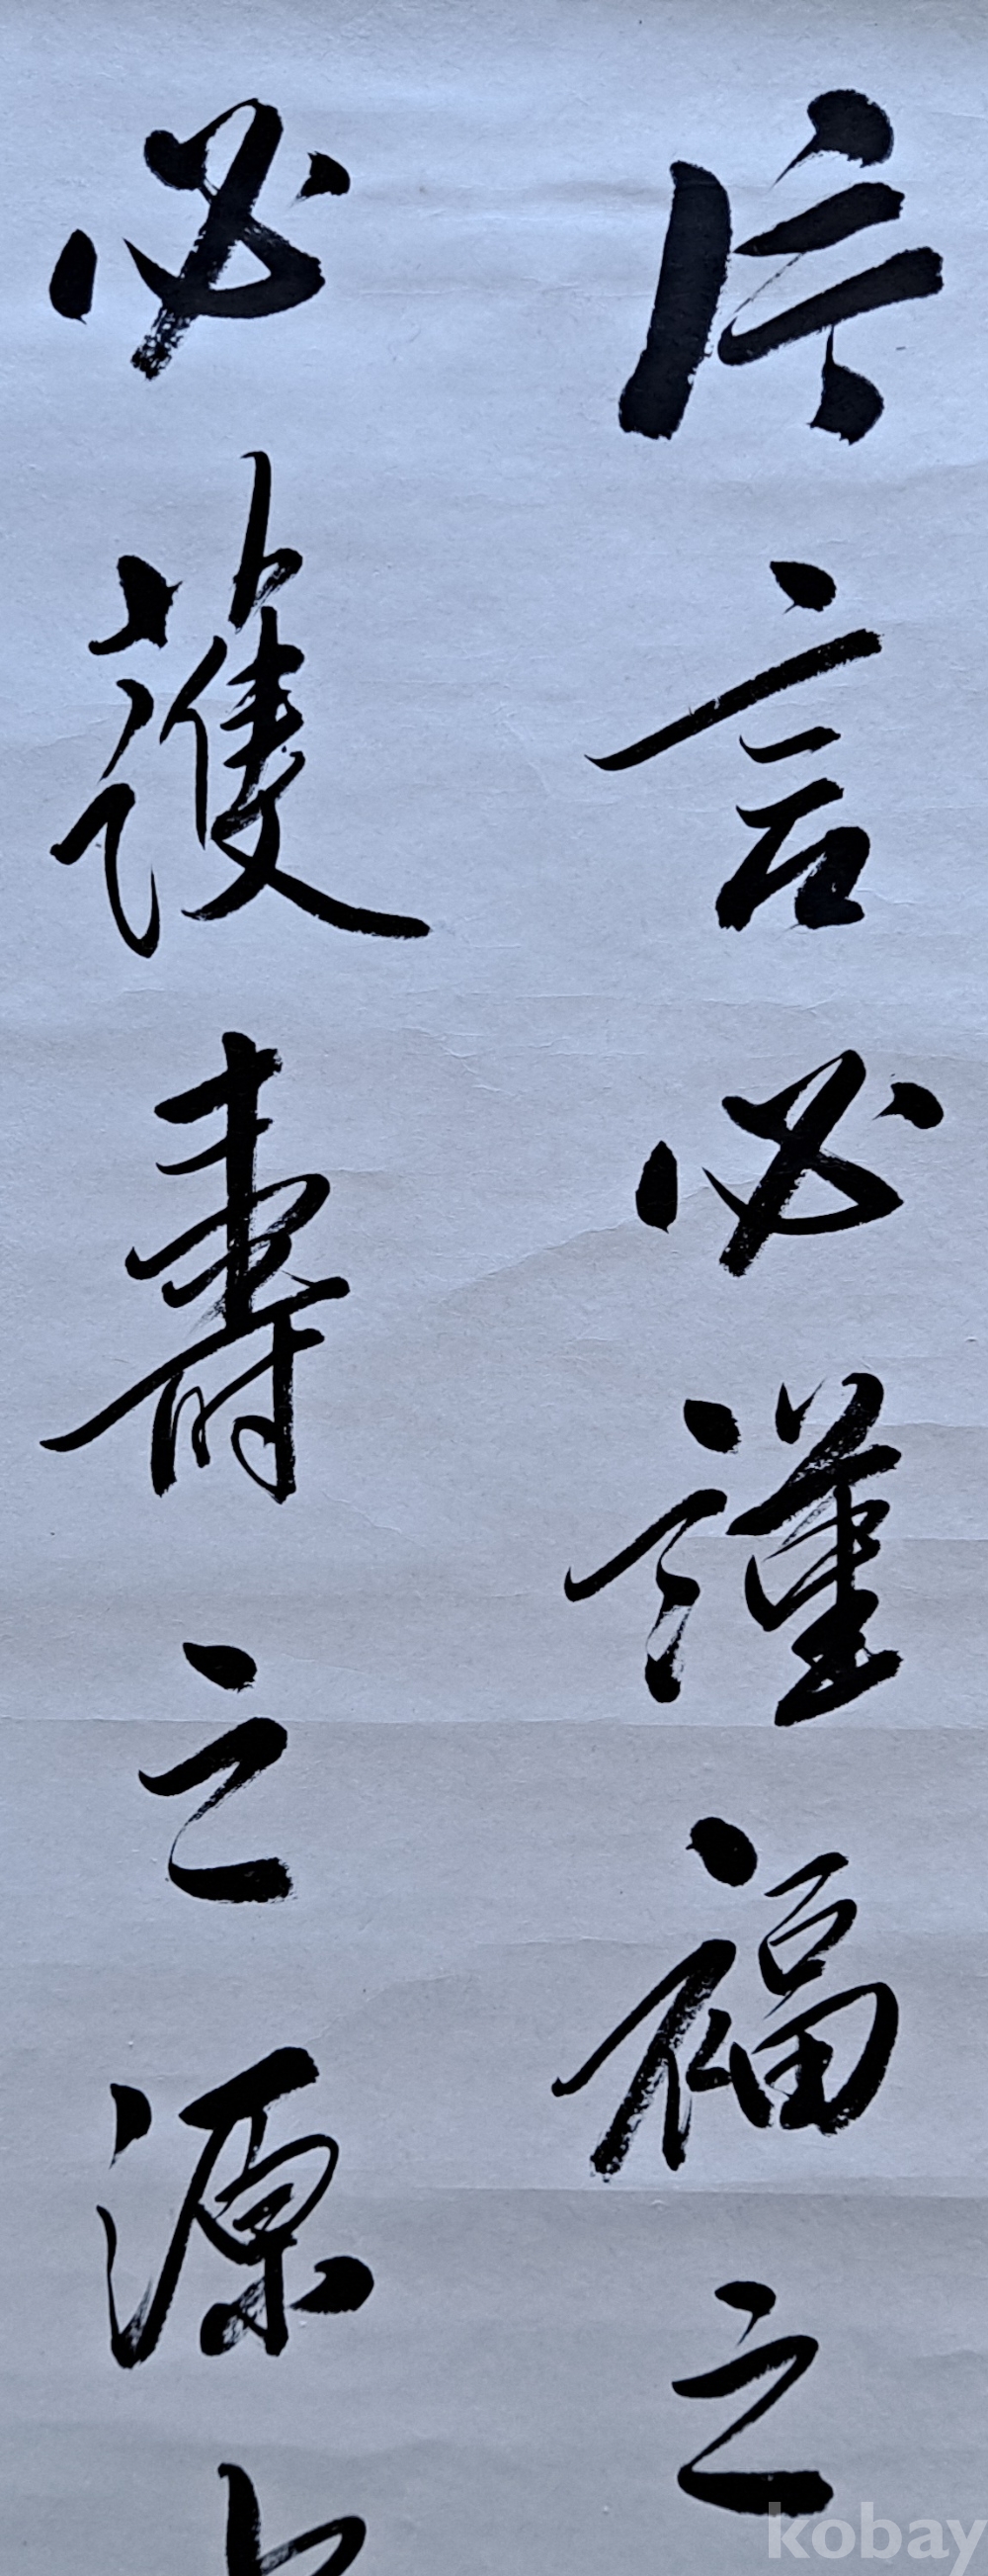 片言必謹福之
必護壽之源
kobay